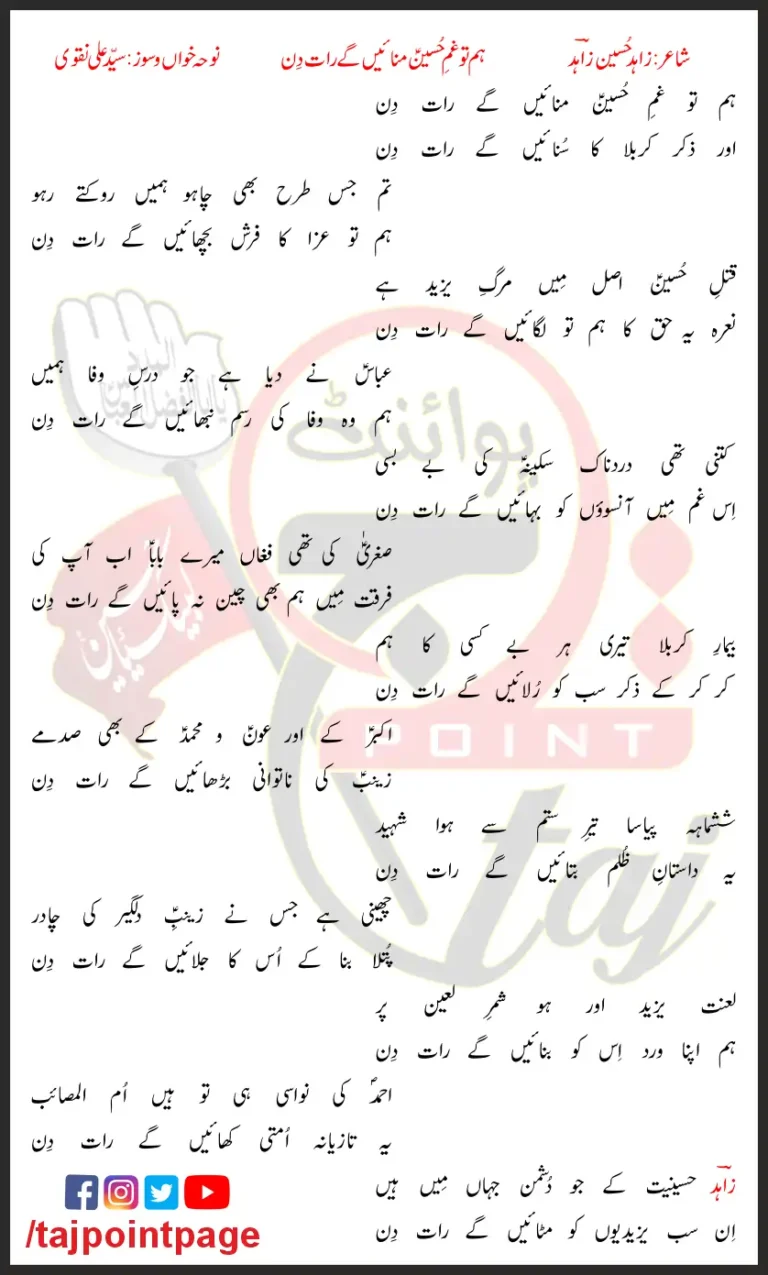 شاعر: زاہد حُسین زاہدؔ ہم تو غمِ حُسینؑ منائیں گے رات دِن نوحہ خواں و سوز: سیّد علی نقوی
ہم تو غمِ حُسینؑ منائیں گے رات دِن
اور ذکر کربلا کا سُنائیں گے رات دِن
تم جس طرح بھی چاہو ہمیں روکتے رہو
ہم تو عزا کا فرش بچھائیں گے رات دِن
قتلِ حُسینؑ اصل مِیں مرگِ یزید ہے
نعرہ یہ حق کا ہم تو لگائیں گے رات دِن
عباسؑ نے دیا ہے جو درسِ وفا ہمیں
ہم وہ وفا کی رسم نبھائیں گے رات دِن
کتنی تھی دردناک سکینہؑ کی بے بسی
اِس غم مِیں آنسوؤں کو بہائیں گے رات دِن
صغریٰؑ کی تھی فغاں میرے باباؑ اب آپ کی
فرقت مِیں ہم بھی چین نہ پائیں گے رات دِن
بیمارِ کربلا تیری ہر بے کسی کا ہم
کر کر کے ذکر سب کو رُلائیں گے رات دِن
اکبرؑ کے اور عونؑ و محمدؑ کے بھی صدمے
زینبؑ کی ناتوانی بڑھائیں گے رات دِن
ششماہہ پیاسا تیرِ ستم سے ہوا شہید
یہ داستانِ ظُلم بتائیں گے رات دِن
چھینی ہے جس نے زینبِؑ دلگیر کی چادر
پُتلا بنا کے اُس کا جلائیں گے رات دِن
لعنت یزید اور ہو شمرِ لعین پر
ہم اپنا ورد اِس کو بنائیں گے رات دِن
احمدؐ کی نواسی ہی تو ہیں اُم المصائب
یہ تازیانہ اُمتی کھائیں گے رات دِن
زاہدؔ حسینیت کے جو دُشمن جہاں مِیں ہیں
اِن سب یزیدیوں کو مٹائیں گے رات دِن
/tajpointpage
پوائنٹ
POINT
taj